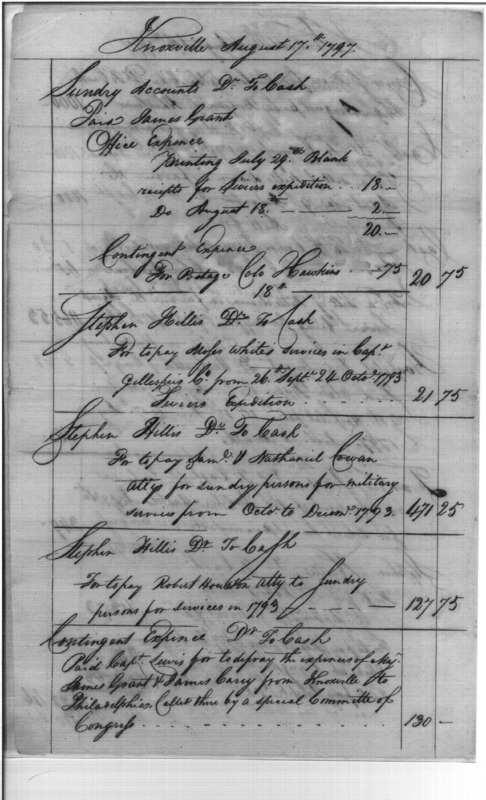 Knoxville August 17.th 1797.
Sundry Accounts Dr. To Cash
Paid James Grant
Office Expence
Printing July 29.th Blank
receipts for Seviers expedition . . 18. —
Do August 18. — — — 2. —
20. —
Contingent Expence
For Postage Colo Hawkins . . 75 20 75
18th
Stephen Hillis Dr. To Cash
For to pay Moses White's services in Capt.
Gillespies Co. from 26th Septr 24 Octor. 1793
Seviers Expedition . . . . . . 21 75
Stephen Hillis Dr. To Cash
For to pay Saml. & Nathaniel Cowan
Attys for sundry persons for military
services from Octor. to Decemr. 1793. 471 25
Stephen Hillis Dr. To Cash
For to pay Robert Houston Atty to Sundry
persons for services in 1793 — — — 127 75
Contingent Expence Dr. To Cash
Paid Capt. Lewis for to defray the expences of Maj.
James Grant & James Carey from Knoxville to
Philadelphia. Called there by a special Committe of
Congress . . . . . . . . . . 130 —